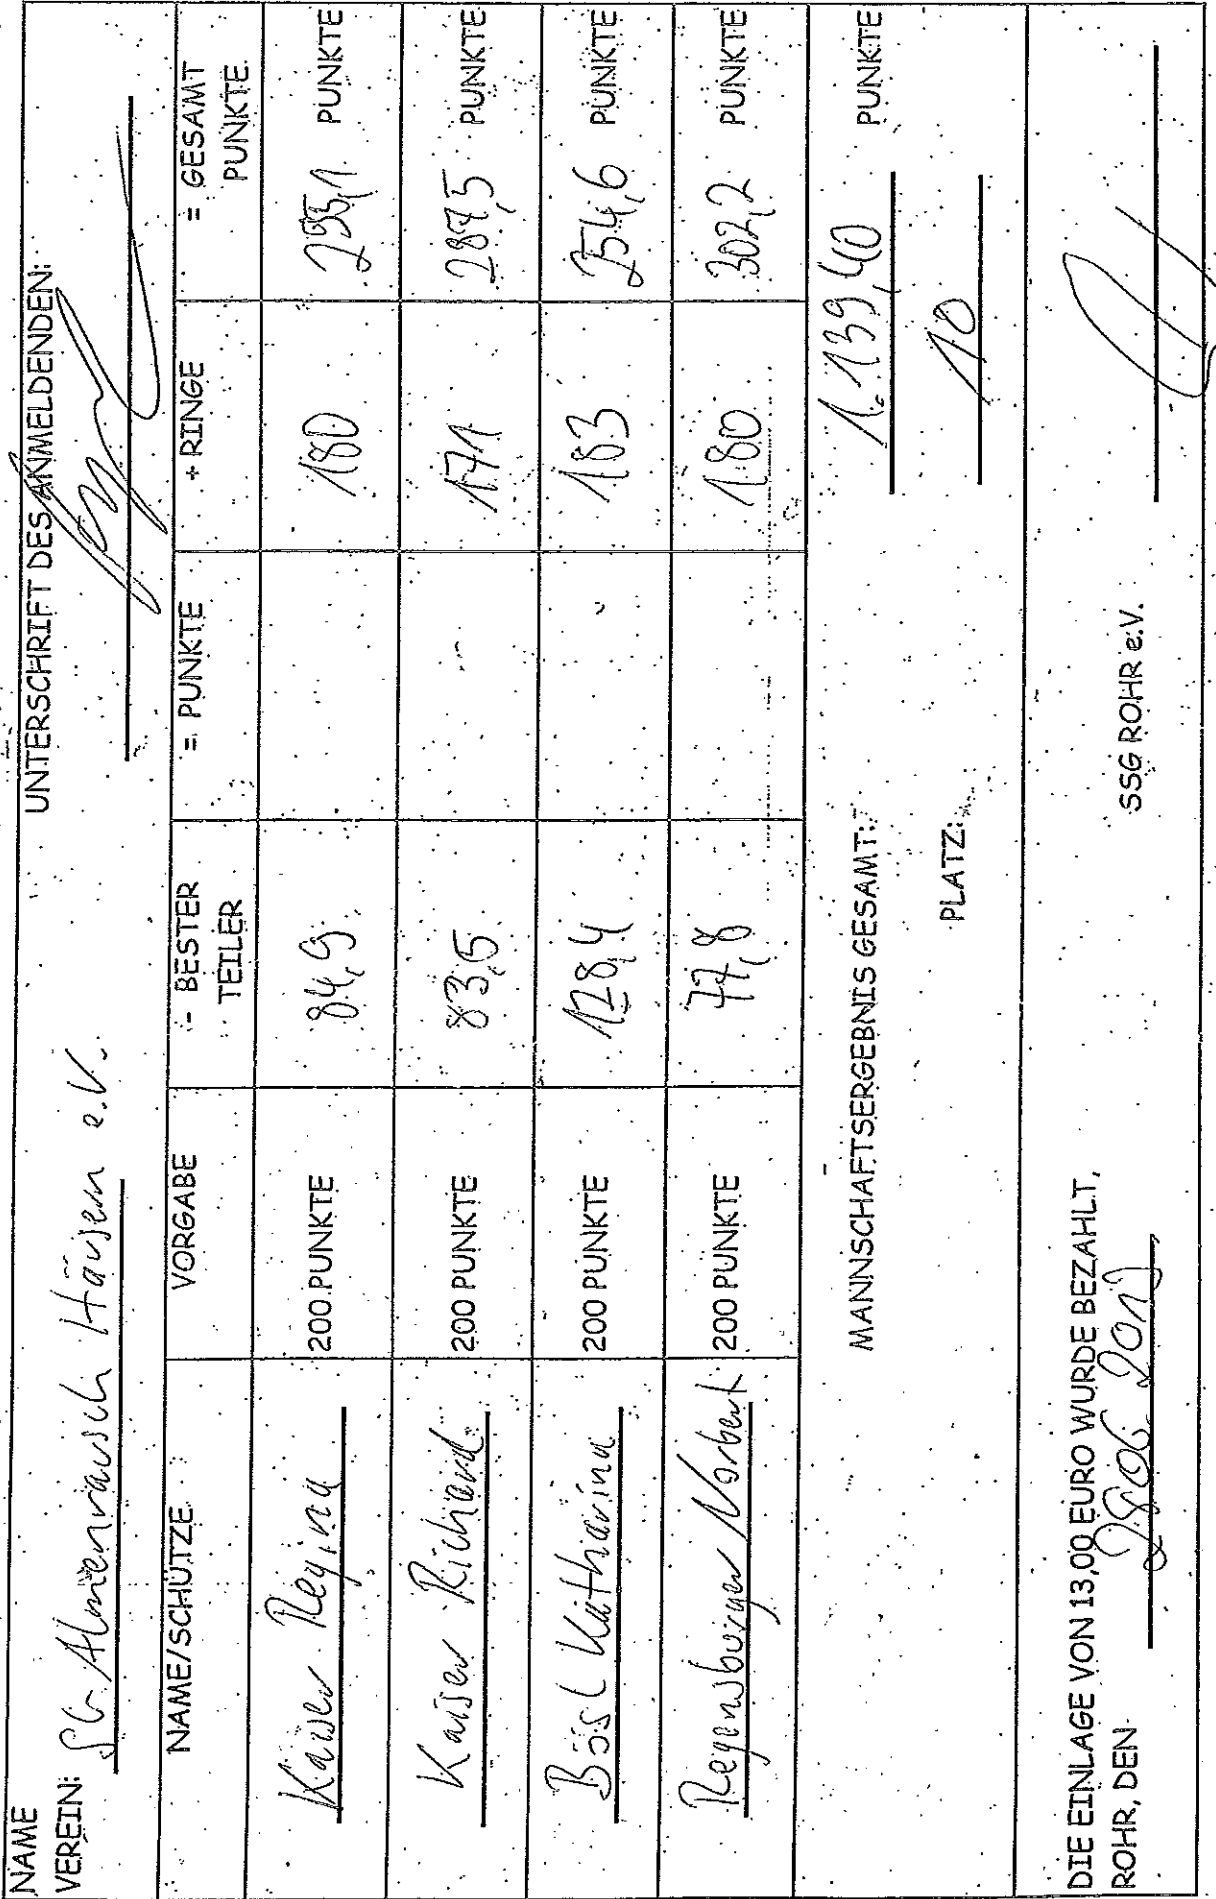 NAME
VEREIN: SG Almenrausch Hausen e.V.
UNTERSCHRIFT DES ANMELDENDEN:
NAME/SCHÜTZE VORGABE - BESTER TEILER = PUNKTE + RINGE = GESAMT PUNKTE
Kaiser Regina 200 PUNKTE 84,9 180 295,1 PUNKTE
Kaiser Richard 200 PUNKTE 83,5 171 287,5 PUNKTE
Bösl Katharina 200 PUNKTE 128,4 183 254,6 PUNKTE
Regensburger Norbert 200 PUNKTE 77,8 180 302,2 PUNKTE
MANNSCHAFTSERGEBNIS GESAMT: 1.139,40 PUNKTE
PLATZ: 10
DIE EINLAGE VON 13,00 EURO WURDE BEZAHLT,
ROHR, DEN SSG ROHR e.V.